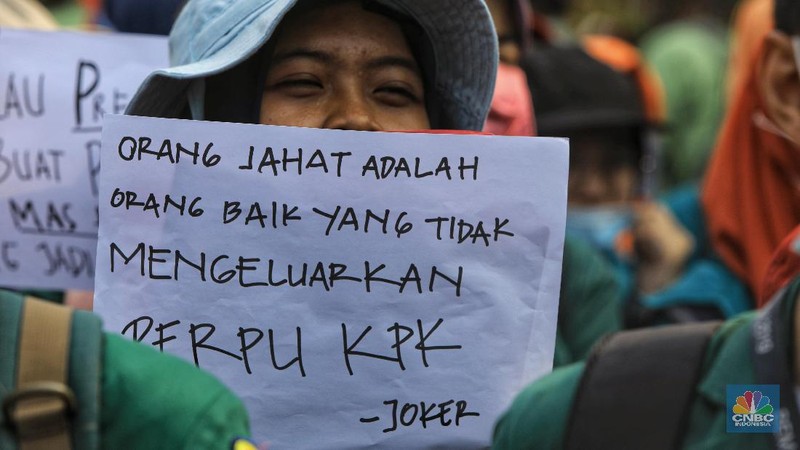 ORANG JAHAT ADALAH
ORANG BAIK YANG TIDAK
MENGELUARKAN
PERPU KPK
-JOKER
BUAT
MAS
CNBC
INDONESIA